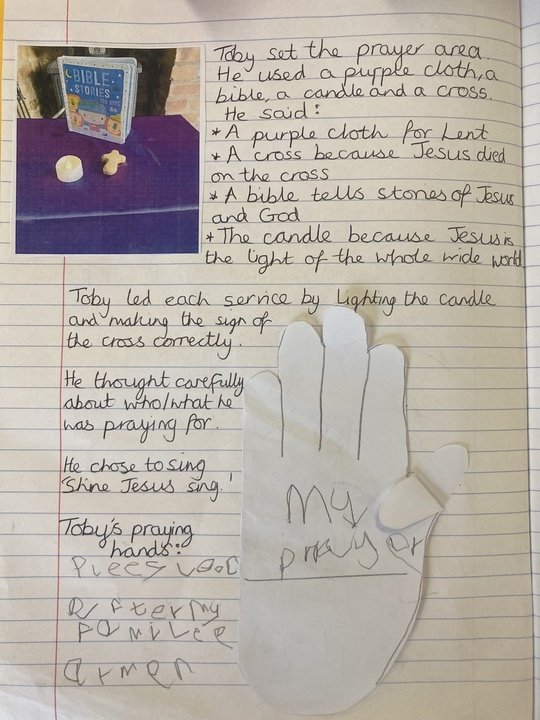 BIBLE
STORIES
FOR BOYS
Toby set the prayer area.
He used a purple cloth, a
bible, a candle and a cross.
He said:
* A purple cloth for Lent
* A cross because Jesus died
on the cross
* A bible tells stories of Jesus
and God
* The candle because Jesus is
the light of the whole wide world.
Toby led each service by lighting the candle
and making the sign of
the cross correctly.
He thought carefully
about who/what he
was praying for.
He chose to sing
'Shine Jesus sing.'
Toby's praying
hands:
My
prayer
Plees
after my
familee
armen